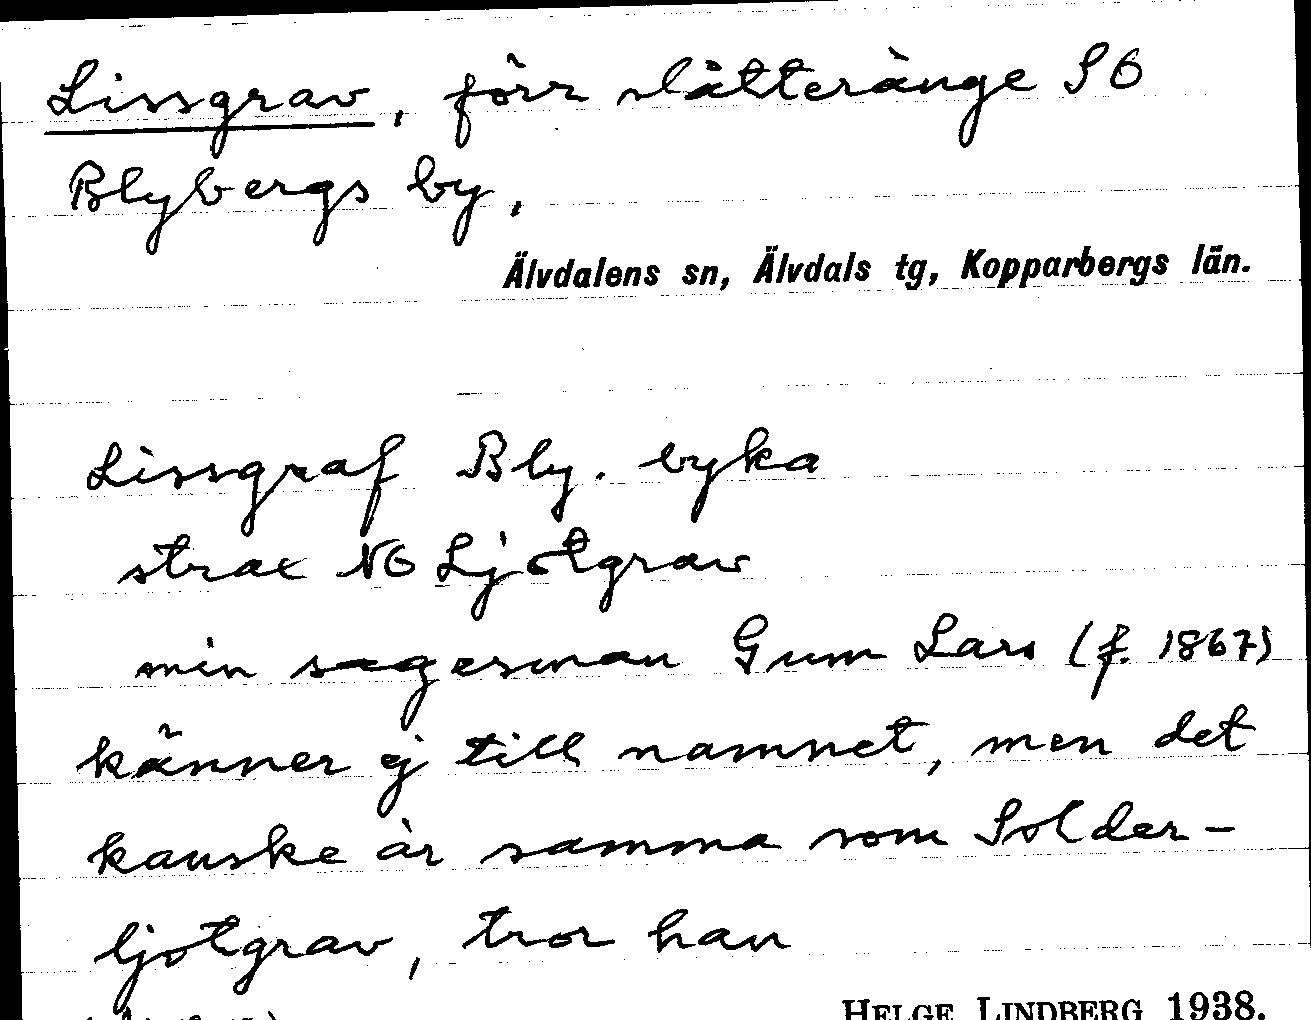 Lissgrav, förr slåtteränge SO
Blybergs by,
Älvdalens sn, Älvdals tg, Kopparbergs län.
Lissgraf Bly. byka
strax NO Ljotgrav
min sagesman Gum Lars (f. 1867)
känner ej till namnet, men det
kanske är samma som Solder-
ljotgrav, tror han
HELGE LINDBERG 1938.